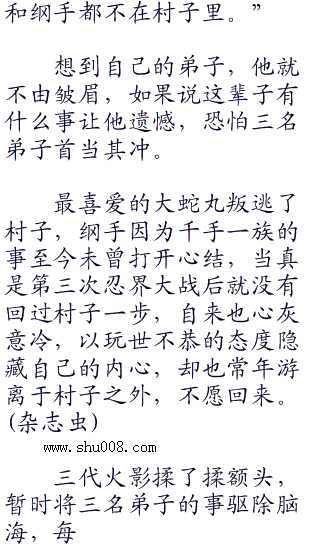 和纲手都不在村子里。”
想到自己的弟子，他就
不由皱眉，如果说这辈子有
什么事让他遗憾，恐怕三名
弟子首当其冲。
最喜爱的大蛇丸叛逃了
村子，纲手因为千手一族的
事至今未曾打开心结，当真
是第三次忍界大战后就没有
回过村子一步，自来也心灰
意冷，以玩世不恭的态度隐
藏自己的内心，却也常年游
离于村子之外，不愿回来。
(杂志虫)
www.shu008.com
三代火影揉了揉额头，
暂时将三名弟子的事驱除脑
海，每